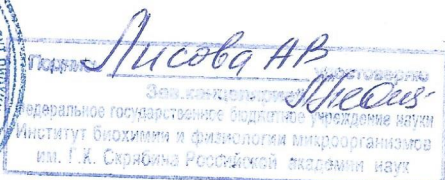 Подпись Лисова АВ удостоверяю
Зав.канцелярией
Федеральное государственное бюджетное учреждение науки
Институт биохимии и физиологии микроорганизмов
им. Г.К. Скрябина Российской академии наук